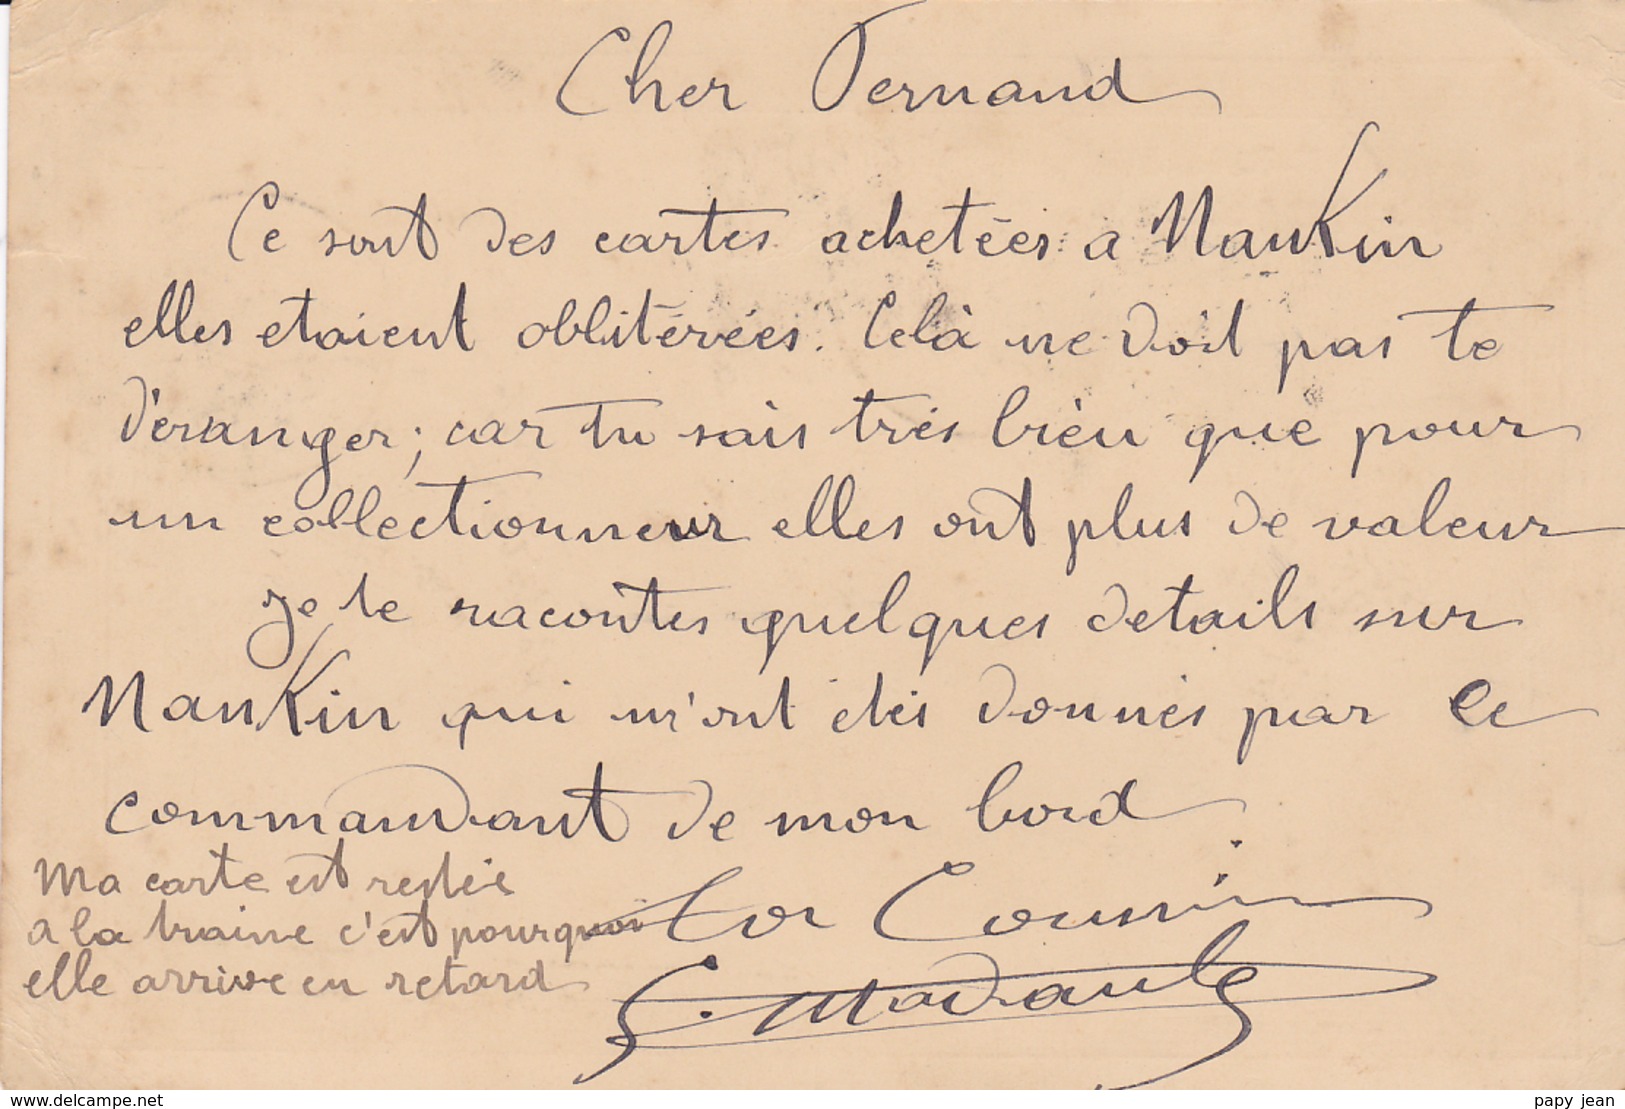 Cher Fernand
Ce sont des cartes achetées a Nankin
elles etaient oblitérées. Celà ne doit pas te
déranger; car tu sais très bien que pour
un collectionneur elles ont plus de valeur
je te racontes quelques details sur
Nankin qui m'ont étés donnés par le
commandant de mon bord.
Ton Cousin
Ma carte est restée
a la traine c'est pourquoi
elle arrive en retard
www.delcampe.net
papy jean